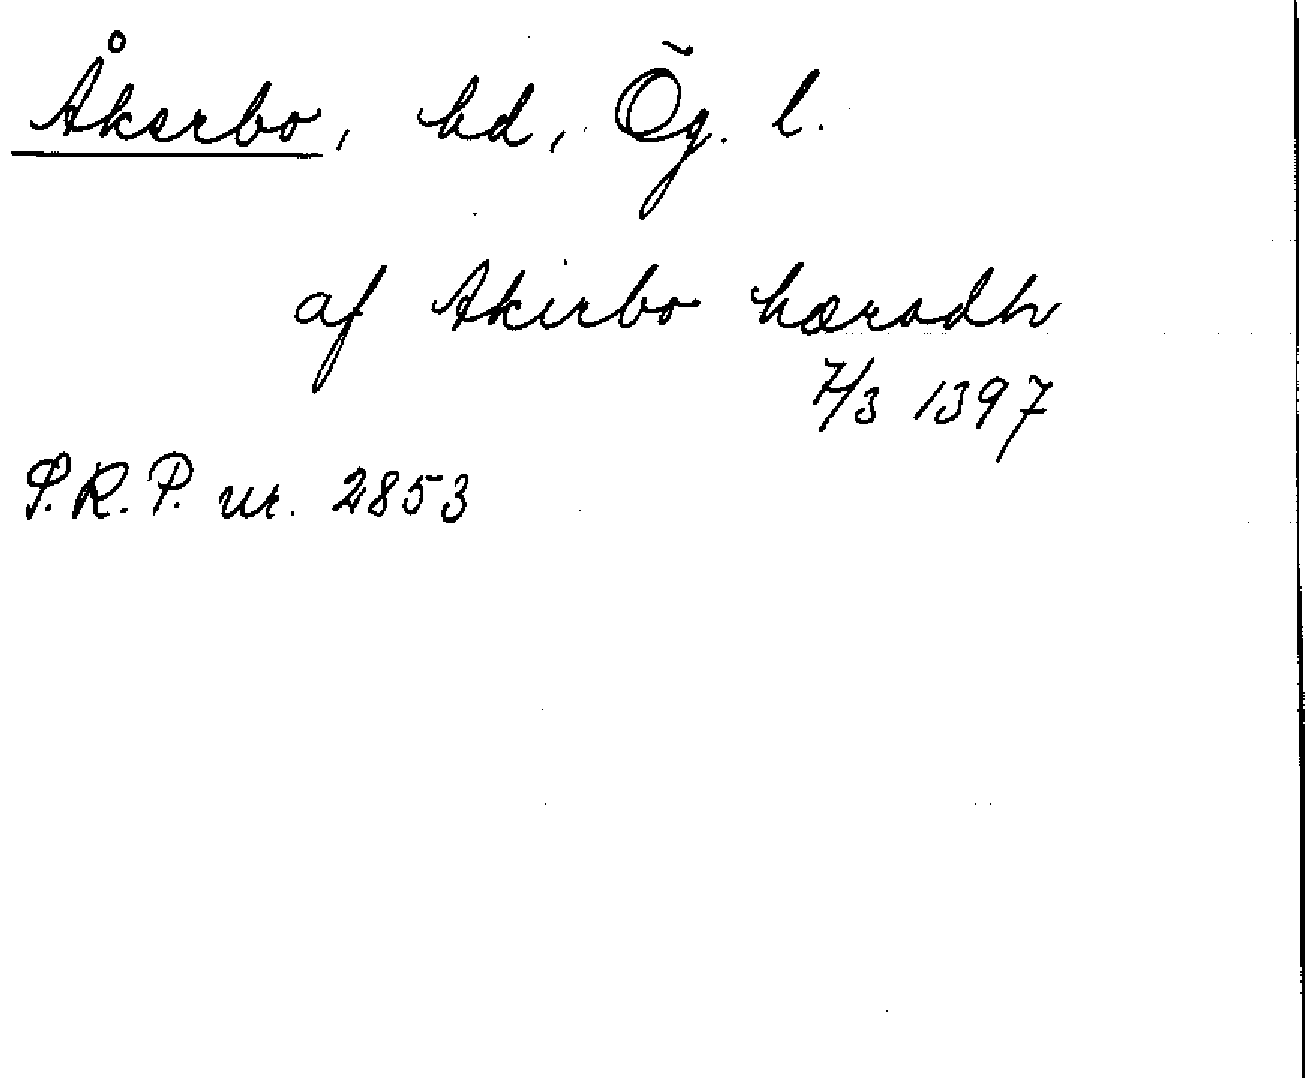 Åkerbo, hd, Ög. l.
af Akirbo hæradh
7/3 1397
S.R.P. nr. 2853